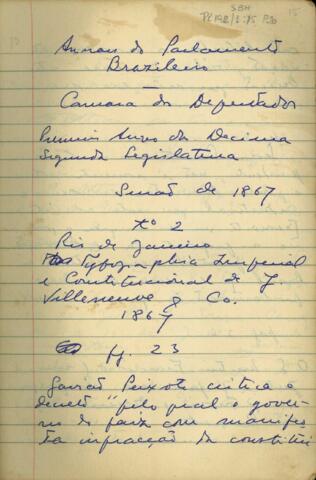 SBH
Pi 192/1:75 P.30
15
Annais do Parlamento
Brazileiro
Camara dos Deputados
Primeiro Anno da Decima
Segunda Legislatura
Sessão de 1867
Tº 2
Rio de Janeiro
Typographia Imperial
e Constitucional de J.
Villeneuve & Co.
1867
pg. 23
Gavião Peixoto critica o
decreto "pelo qual o gover-
no do paiz com manifes-
ta infracção da constitui